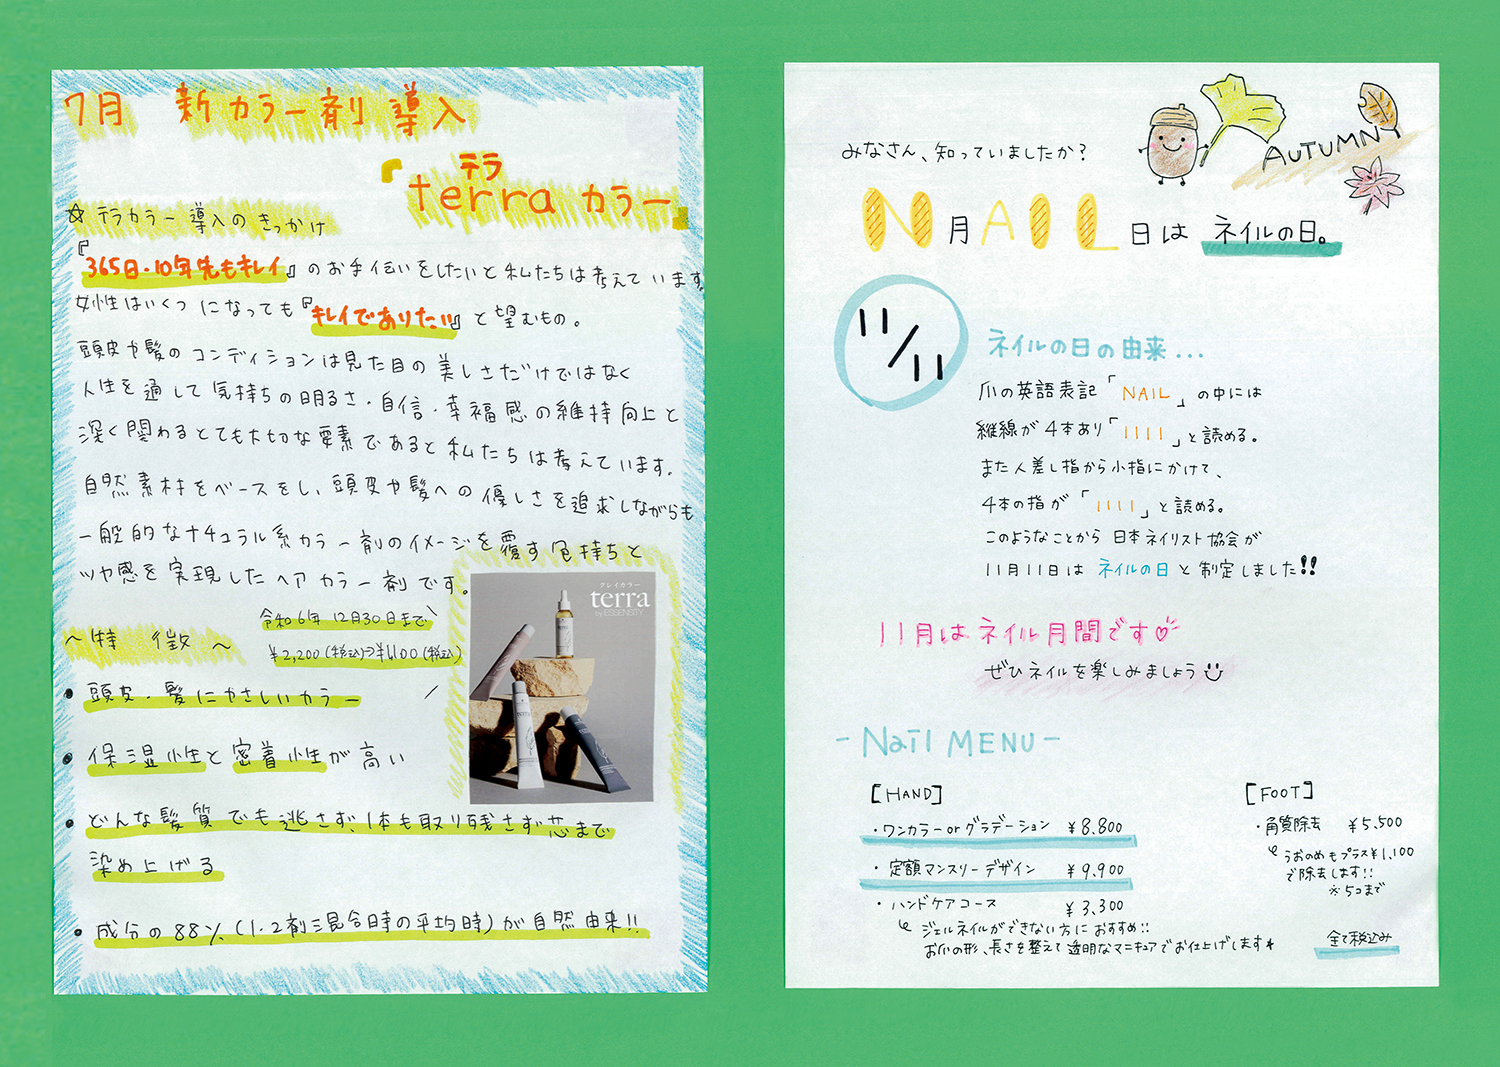 7月 新カラー剤導入
テラ
『terraカラー』
☆テラカラー導入のきっかけ
『365日・10年先もキレイ』のお手伝いをしたいと私たちは考えています。
女性はいくつになっても『キレイでありたい』と望むもの。
頭皮や髪のコンディションは見た目の美しさだけではなく
人生を通して気持ちの明るさ・自信・幸福感の維持向上と
深く関わるとても大切な要素であると私たちは考えています。
自然素材をベースをし、頭皮や髪への優しさを追求しながらも
一般的なナチュラル系カラー剤のイメージを覆す色持ちと
ツヤ感を実現したヘアカラー剤です。
クレイカラー
terra
by ESSENSITY
令和6年12月30日まで
¥2,200(税込)→¥1,100(税込)
～特徴～
・頭皮・髪にやさしいカラー
・保湿性と密着性が高い
・どんな髪質でも逃さず、1本も取り残さず芯まで
染め上げる
・成分の88%(1.2剤混合時の平均時)が自然由来!!
AUTUMN
みなさん、知っていましたか？
N月AIL日はネイルの日。
11/11
ネイルの日の由来...
爪の英語表記「NAIL」の中には
縦線が4本あり「1111」と読める。
また人差し指から小指にかけて、
4本の指が「1111」と読める。
このようなことから日本ネイリスト協会が
11月11日はネイルの日と制定しました!!
11月はネイル月間です♡
ぜひネイルを楽しみましょう
-Nail MENU-
[HAND]
・ワンカラーorグラデーション ¥8.800
・定額マンスリーデザイン ¥9,900
・ハンドケアコース ¥3,300
ジェルネイルができない方におすすめ!!
お爪の形、長さを整えて透明なマニキュアでお仕上げします★
[FOOT]
・角質除去 ¥5,500
うおのめもプラス¥1,100
で除去します!!
※5コまで
全て税込み